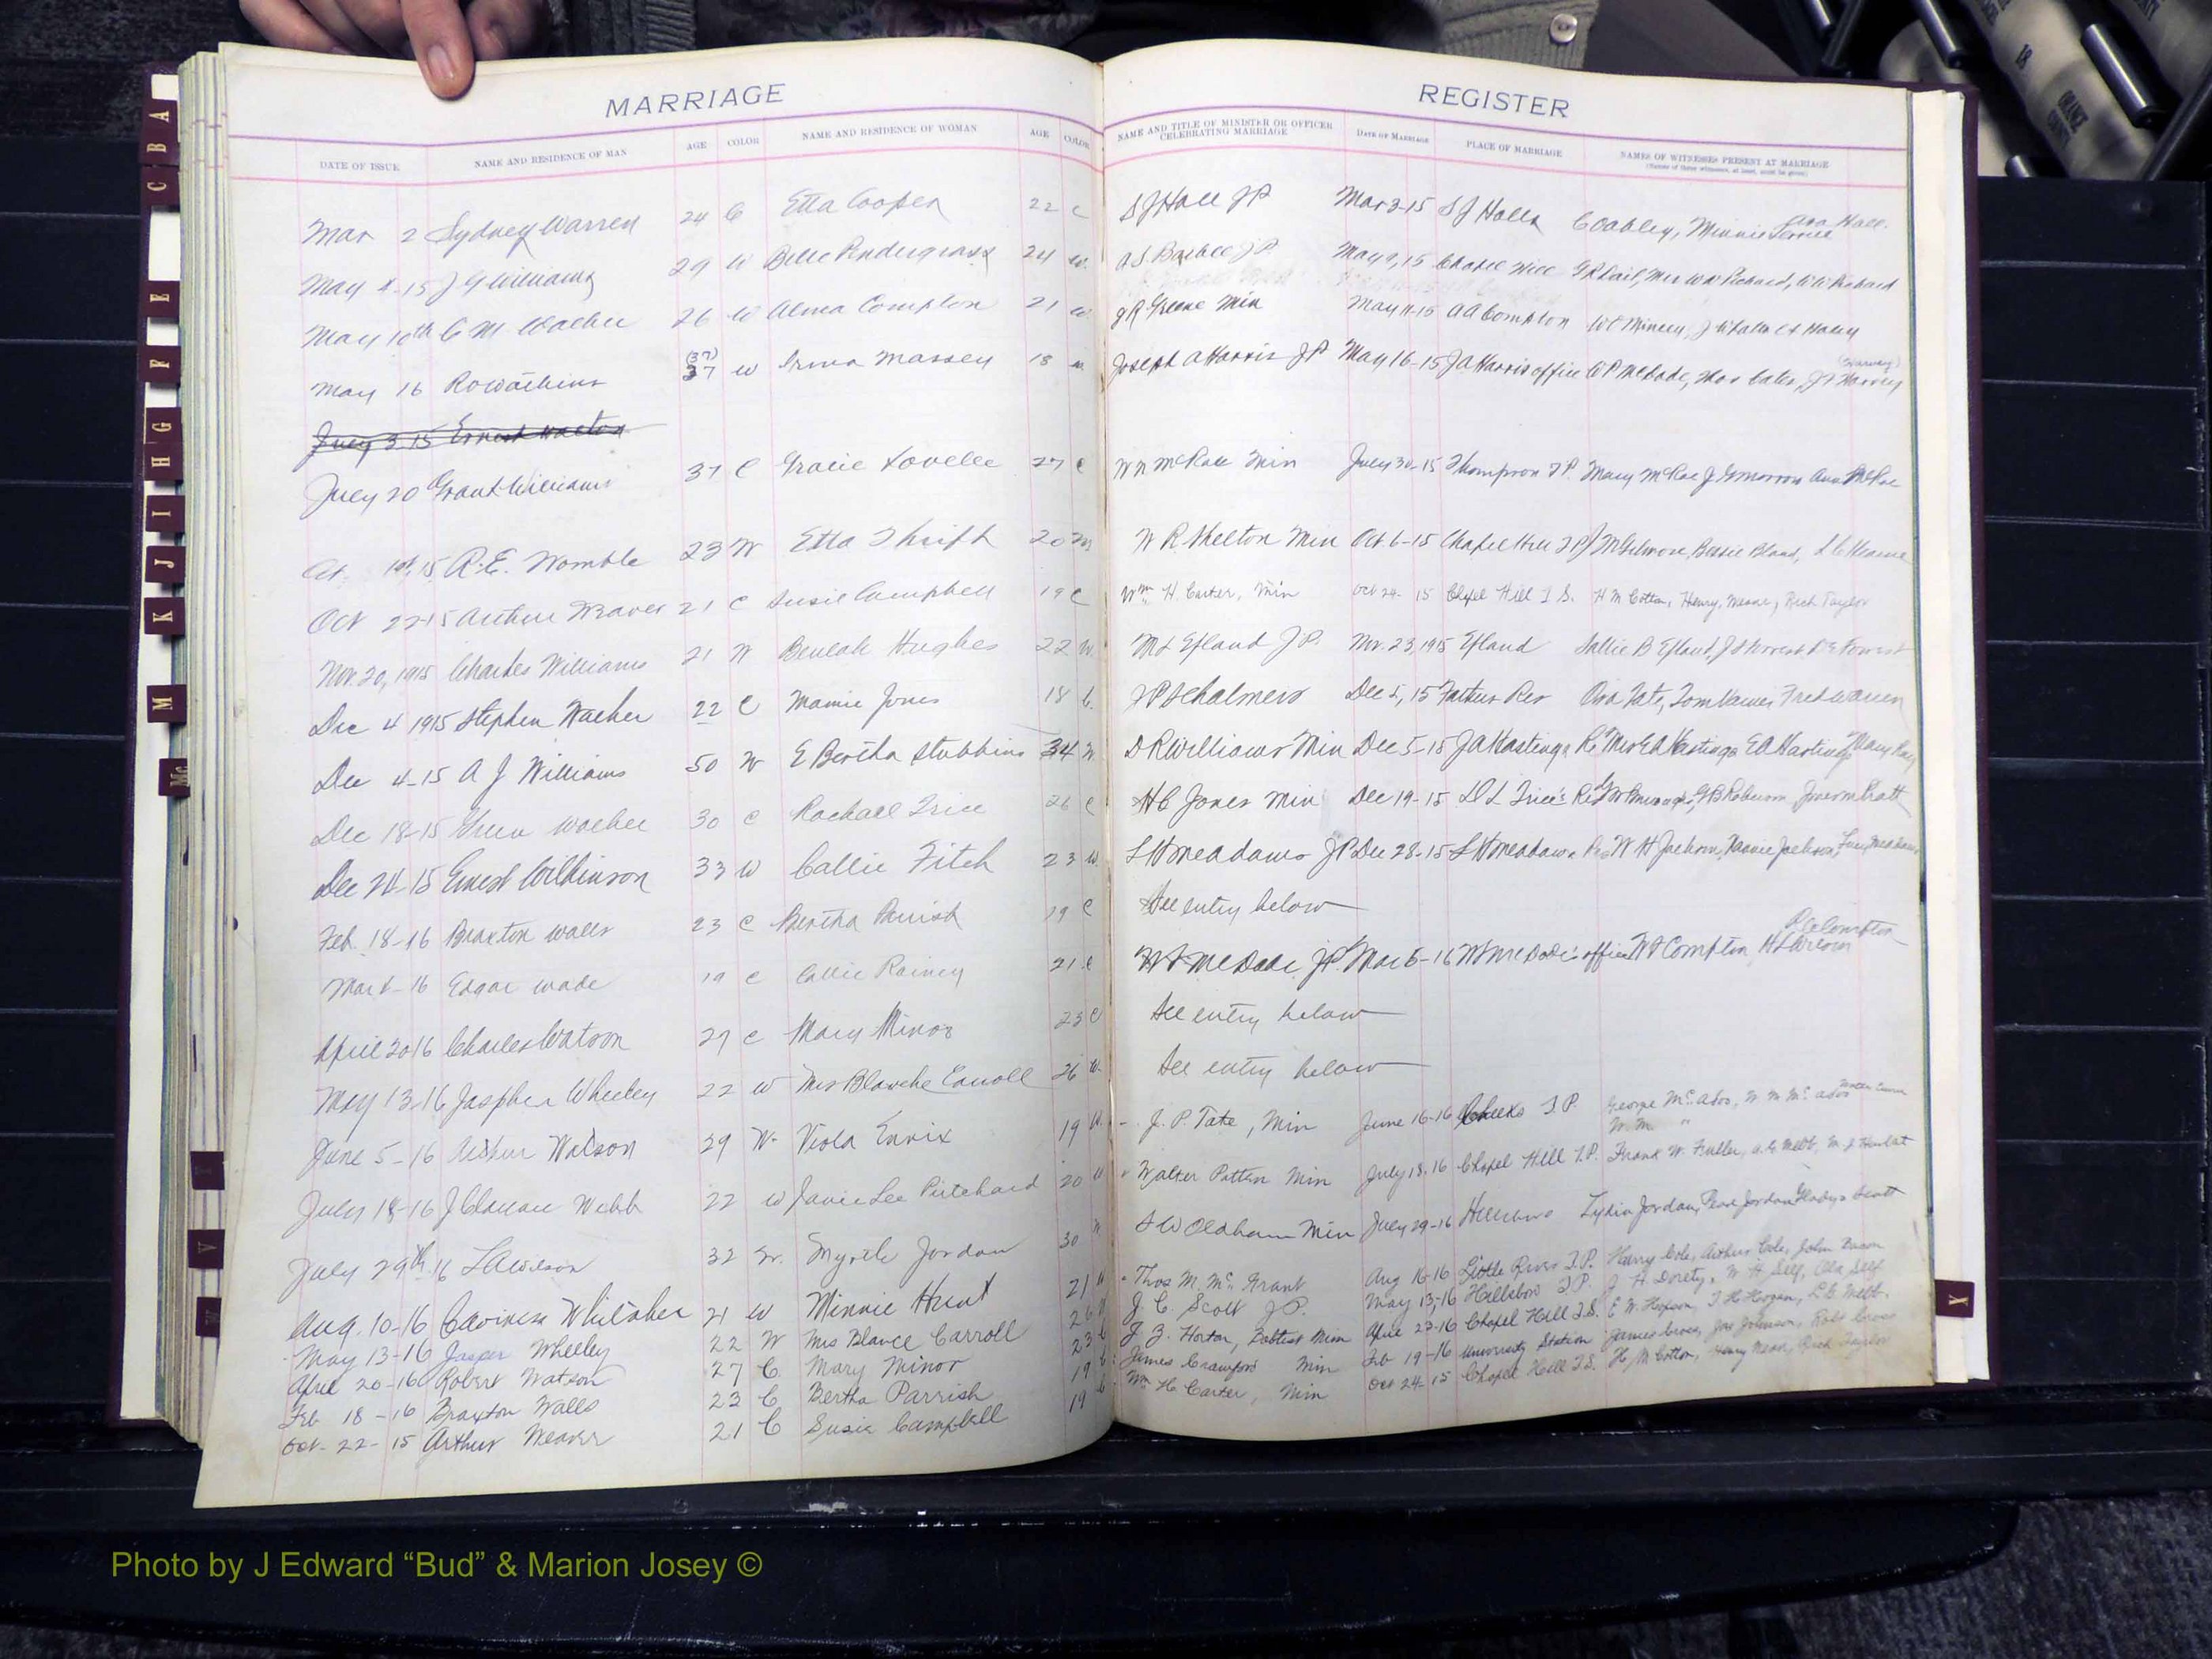 MARRIAGE REGISTER
DATE OF ISSUE NAME AND RESIDENCE OF MAN AGE COLOR NAME AND RESIDENCE OF WOMAN AGE COLOR NAME AND TITLE OF MINISTER OR OFFICER CELEBRATING MARRIAGE DATE OF MARRIAGE PLACE OF MARRIAGE NAMES OF WITNESSES PRESENT AT MARRIAGE
(Names of three witnesses, at least, must be given)
Mar 2 Sydney Warren 24 C Etta Cooper 22 C S J Hall JP Mar 2-15 S J Halls C Oakley, Minnie Hall
May 8-15 J G Williams 29 W Belle Pendergrass 24 W. A S. Barbee J P. May 9, 15 Chapel Hill Mrs W W Pickard, W W Pickard
May 10th C M Walker 26 W Alma Compton 21 W J R Greene Min May 11-15 A A Compton
May 16 R O Watkins (37) 37 W Irma Massey 18 W Joseph A Harris JP May 16-15 J A Harris office C P McCade, Thos Cates, J T Harvey
July 3 15 Ernest Walton
July 20 Grant Williams 37 C Gracie Lovelee 27 C W N McRae Min July 30-15 Thompson T P. Mary McRae J G Morrow McRae
Oct. 1st, 15 R. E. Womble 23 W Etta Thrift 20 W W R Shelton Min Oct. 6-15 Chapel Hill T P J M Gilmore, Bessie Bland,
Oct 22-15 Arthur Weaver 21 C Susie Campbell 19 C Wm H. Carter, Min Oct 24- 15 Chapel Hill T. S. H M Cotton, Henry Mears, Rich Taylor
Nov. 20, 1915 Charles Williams 21 W Beulah Hughes 22 W. M L Efland J P. Nov. 23, 1915 Efland Sallie B Efland, J S Forrest, Forrest
Dec 4 1915 Stephen Walker 22 C Mamie Jones 18 C. J P S Chalmers Dec 5, 15 Fathers Res Ora Tate, Tom Fred Warren
Dec 4-15 A J Williams 50 W E Bertha Stubbins 34 W D R Williams Min Dec 5-15 J A Hastings Re Mrs E A Hastings E A Hastings
Dec 18-15 Green Walker 30 C Rachael Trice 26 C H C Jones Min Dec 19-15 D L Trice's Res G B Roberson Pratt
Dec 24-15 Ernest Wilkinson 33 W Callie Fitch 23 W. S H Meadows JP Dec 28-15 S H Meadows Res W H Jackson, Nannie Jackson, Meadows
Feb. 18-16 Braxton Walls 23 C Bertha Parrish 19 C See entry below
Mar 4-16 Edgar Wade 19 C Callie Rainey 21 C W F McDade J P. Mar 5-16 W F McDade's office W S Compton,
April 20 16 Charles Watson 27 C Mary Minor 23 C See entry below
May 13-16 Jaspher Wheeley 22 W Mrs Blanche Carroll 26 W. See entry below
June 5-16 Arthur Watson 29 W. Viola Ennix 19 W. J. P. Tate, Min June 16-16 Cheeks T. P. George McAdoo, W. M. McAdoo
July 18-16 J Clarence Webb 22 W Janie Lee Pritchard 20 W Walter Patten Min July 18. 16 Chapel Hill T.P. Frank W. Fuller,
July 29th. 16 L A Wilson 32 W. Myrtle Jordan 30 W S W Oldham Min July 29-16 Hillsboro Lydia Jordan, Pearl Jordan Gladys Scott
Aug. 10-16 Caviness Whitaker 21 W Minnie Hunt 21 W Thos M. McGrant Aug 16-16 Little River T.P. Harry Cole, Arthur Cole, John
May 13-16 Jasper Wheeley 22 W Mrs Blance Carroll 26 W J. C. Scott J P. May 13-16 Hillsboro T.P. J H Dorety, W H Self, Ola Self
April 20-16 Robert Watson 27 C. Mary Minor 23 C J. J. Horton, Babtist Min April 23-16 Chapel Hill T.S. T H Hogan,
Feb 18-16 Braxton Walls 23 C. Bertha Parrish 19 C James Crawford Min Feb 19-16 University Station James Cross, Jas Johnson, Robt Cross
Oct- 22- 15 Arthur Weaver 21 C Susie Campbell 19 C Wm H. Carter, Min Oct 24- 15 Chapel Hill T.S. H. M Cotton, Henry Mears, Rich Taylor
A
B
C
E
F
G
H
I
J
K
M
Mc
T
V
W
Y
18
ORANGE COUNTY
Photo by J Edward “Bud” & Marion Josey ©